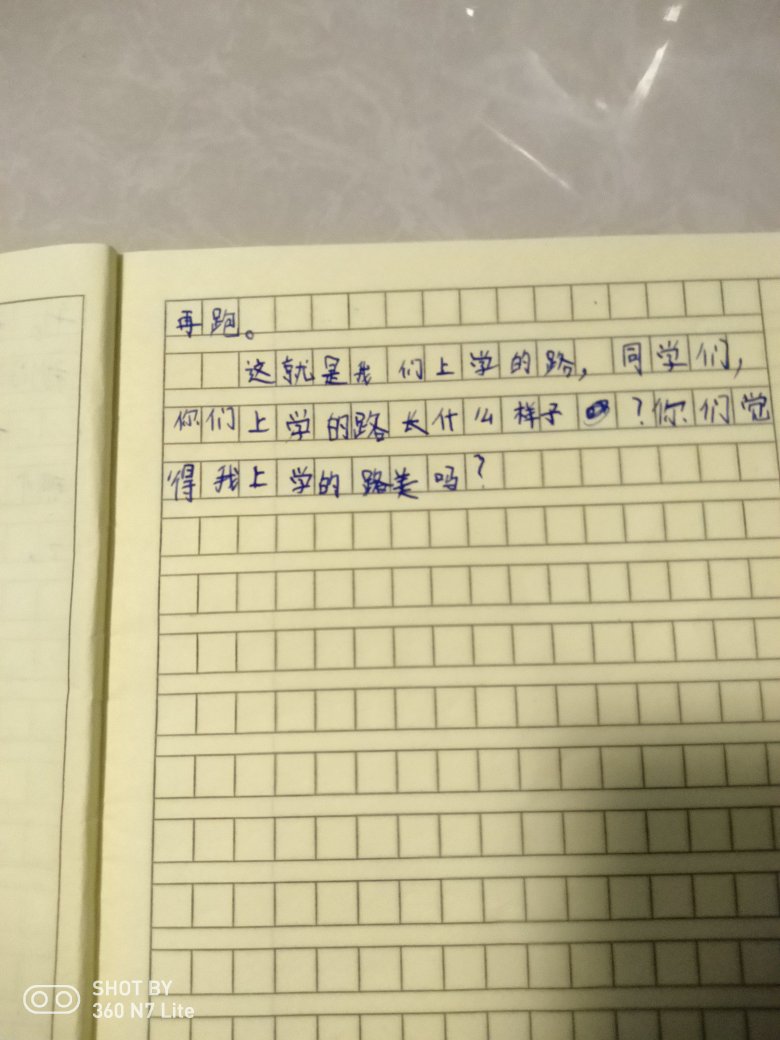 再跑。
这就是我们上学的路，同学们，
你们上学的路长什么样子？你们觉
得我上学的路美吗？
SHOT BY
360 N7 Lite